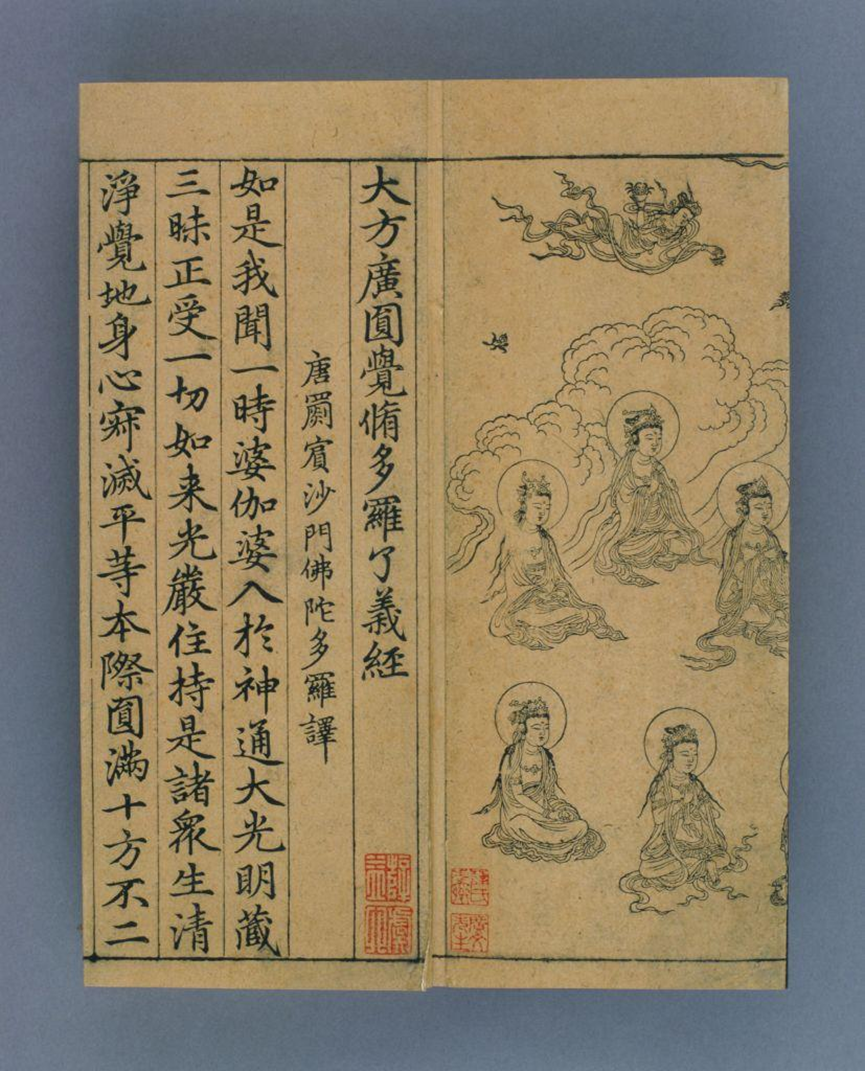 大方廣圎覺脩多羅了義經
唐罽賔沙門佛陀多羅譯
如是我聞一時婆伽婆入於神通大光明藏
三昧正受一切如来光嚴住持是諸衆生清
淨覺地身心寂滅平等本際圎滿十方不二